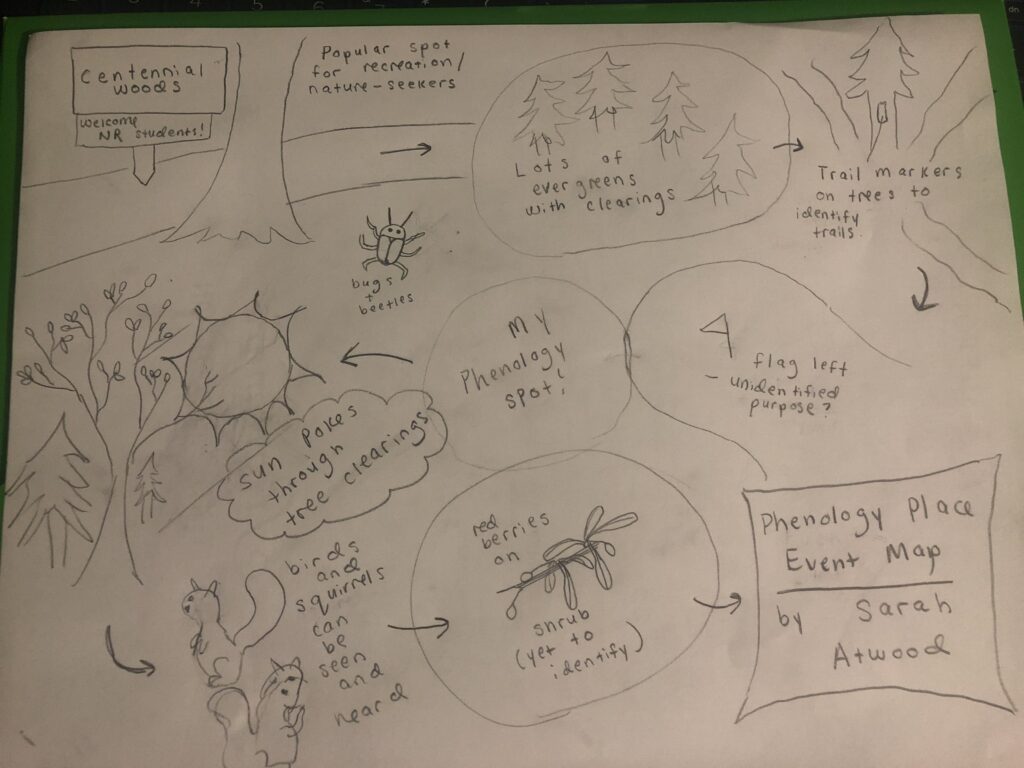 Centennial
Woods
Welcome
NR students!
Popular spot
for recreation/
nature-seekers
Lots of
evergreens
with clearings
Trail markers
on trees to
identify
trails.
bugs
+
beetles
My
Phenology
spot!
flag left
- unidentified
purpose?
sun pokes
through
tree clearings
birds
and
squirrels
can
be
seen
and
heard
red
berries
on
shrub
(yet to
identify)
Phenology Place
Event Map
by Sarah
Atwood